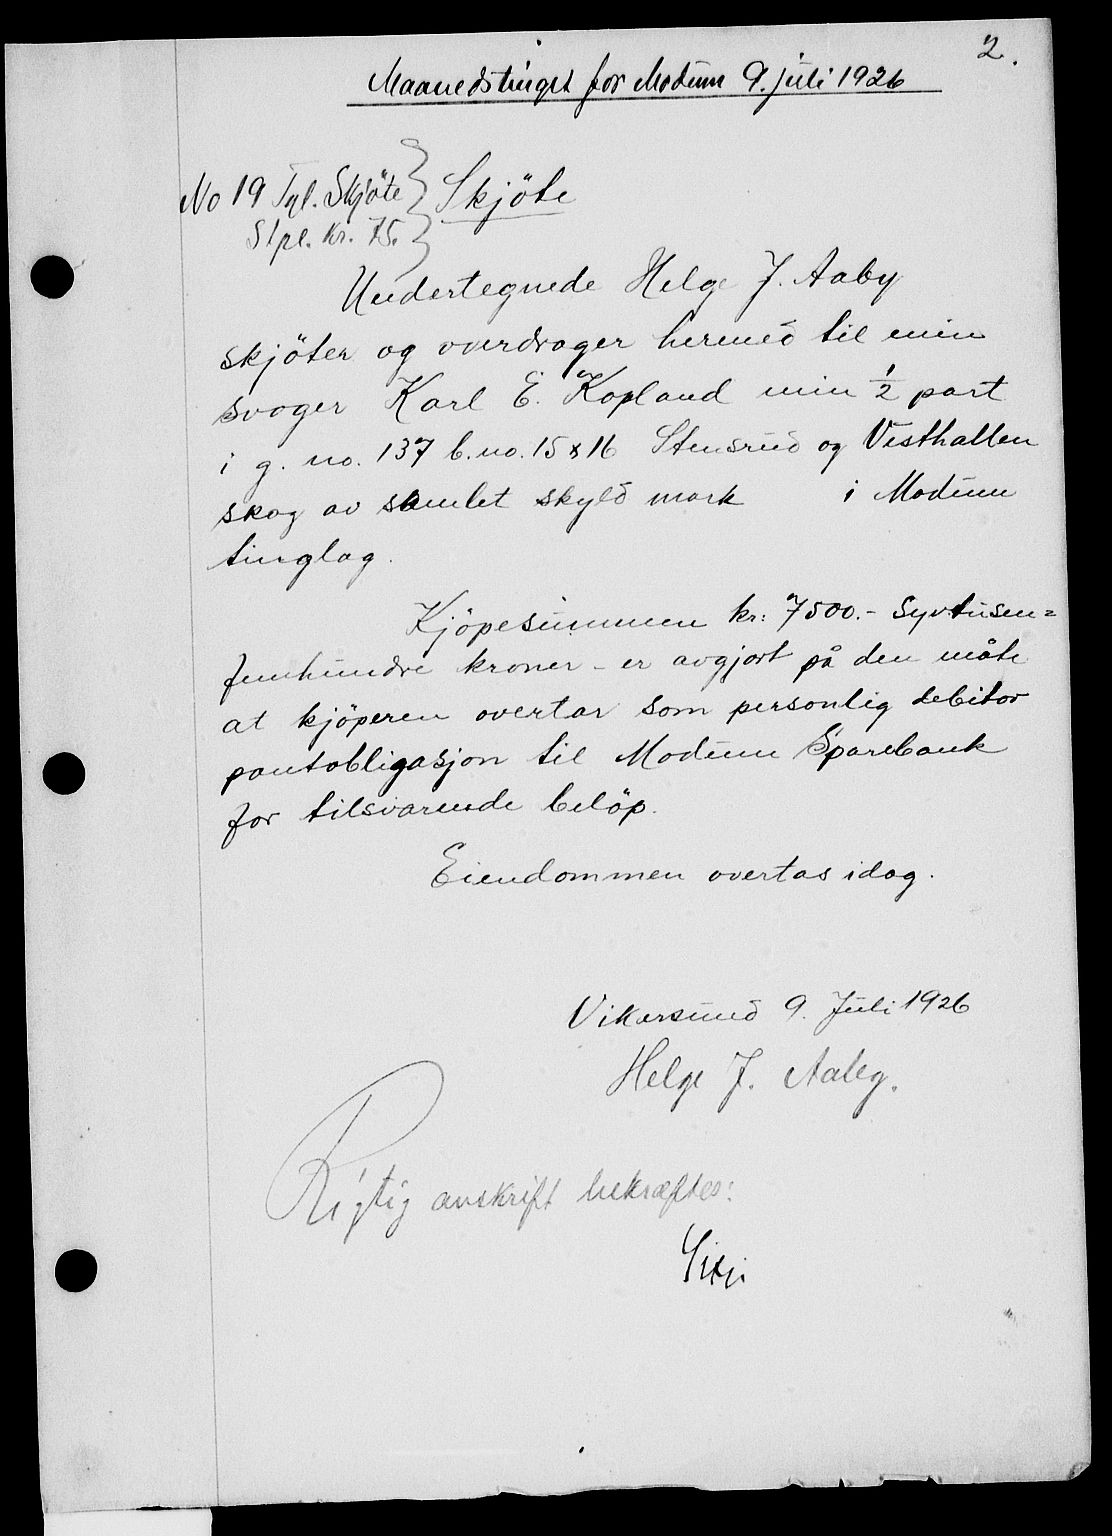 2.
Maanedstinget for Modum 9. juli 1926
No 19 Tgl. Skjöte
Stpl. Kr. 75.
Skjöte
Undertegnede Helge J. Aaby
skjöter og overdrager hermed til min
svoger Karl E. Kopland min 1/2 part
i g. no. 137 b. no. 15 & 16 Stensrud og Vesthallen
skog av samlet skyld mark i Modum
tinglag.
Kjöpesummen kr: 7500.- syvtusen=
femhundre kroner - er avgjort på den måte
at kjöperen overtar som personlig debitor
pantobligasjon til Modum Sparebank
for tilsvarende belöp.
Eiendommen overtas idag.
Vikersund 9. Juli 1926
Helge J. Aaby.
Rigtig avskrift bekræftes: